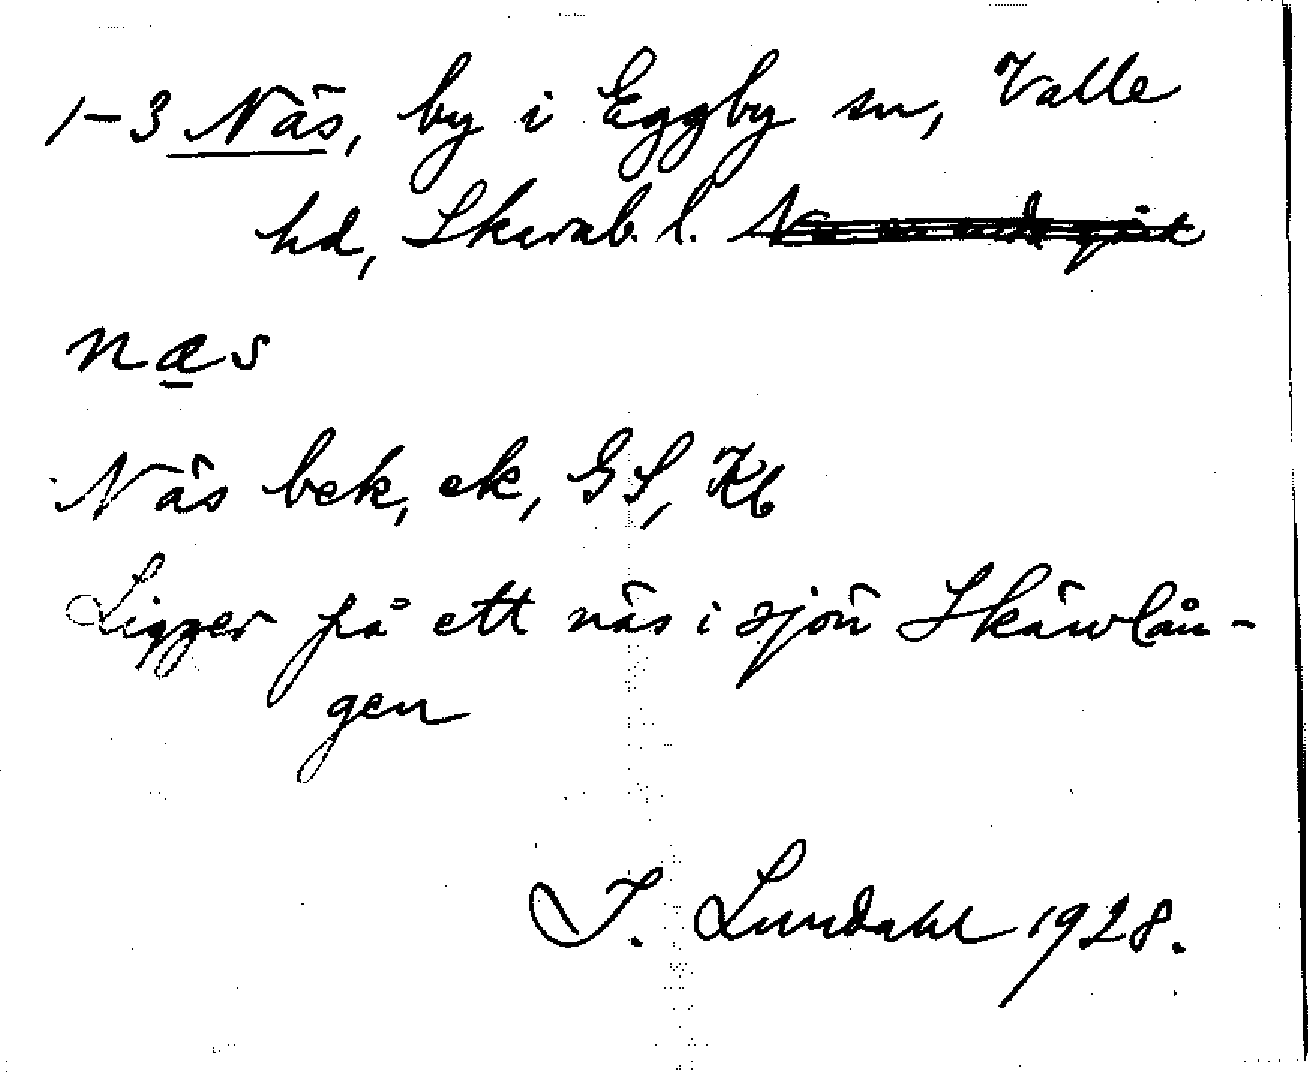 1-3 Näs, by i Eggby sn, Valle
hd, Skarab. l.
næs
Näs bek, ek, GS, Kb
Ligger på ett näs i sjön Skärvlån-
gen
I. Lundahl 1928.